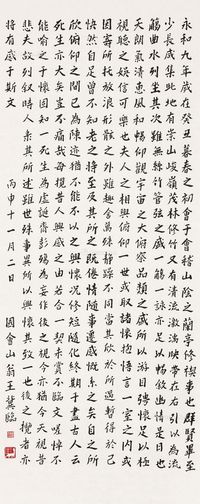 永和九年歲在癸丑暮春之初會于會稽山陰之蘭亭修禊事也群賢畢至
少長咸集此地有崇山峻嶺茂林修竹又有清流激湍映帶左右引以為流
觴曲水列坐其次雖無絲竹管弦之盛一觴一詠亦足以暢敘幽情是日也
天朗氣清惠風和暢仰觀宇宙之大俯察品類之盛所以游目騁懷足以極
視聽之娛信可樂也夫人之相與俯仰一世或取諸懷抱悟言一室之內或
因寄所托放浪形骸之外雖趣舍萬殊靜躁不同當其欣於所遇暫得於己
快然自足曾不知老之將至及其所之既倦情隨事遷感慨係之矣向之所
欣俯仰之間已為陳迹猶不能不以之興懷況修短隨化終期于盡古人云
死生亦大矣豈不痛哉每覽昔人興感之由若合一契未嘗不臨文嗟悼不
能喻之于懷固知一死生為虛誕齊彭殤為妄作後之視今亦猶今之視昔
悲夫故列敘時人錄其所述雖世殊事異所以興懷其致一也後之覽者亦
將有感于斯文 丙申十一月二日 國會山翁王冀臨